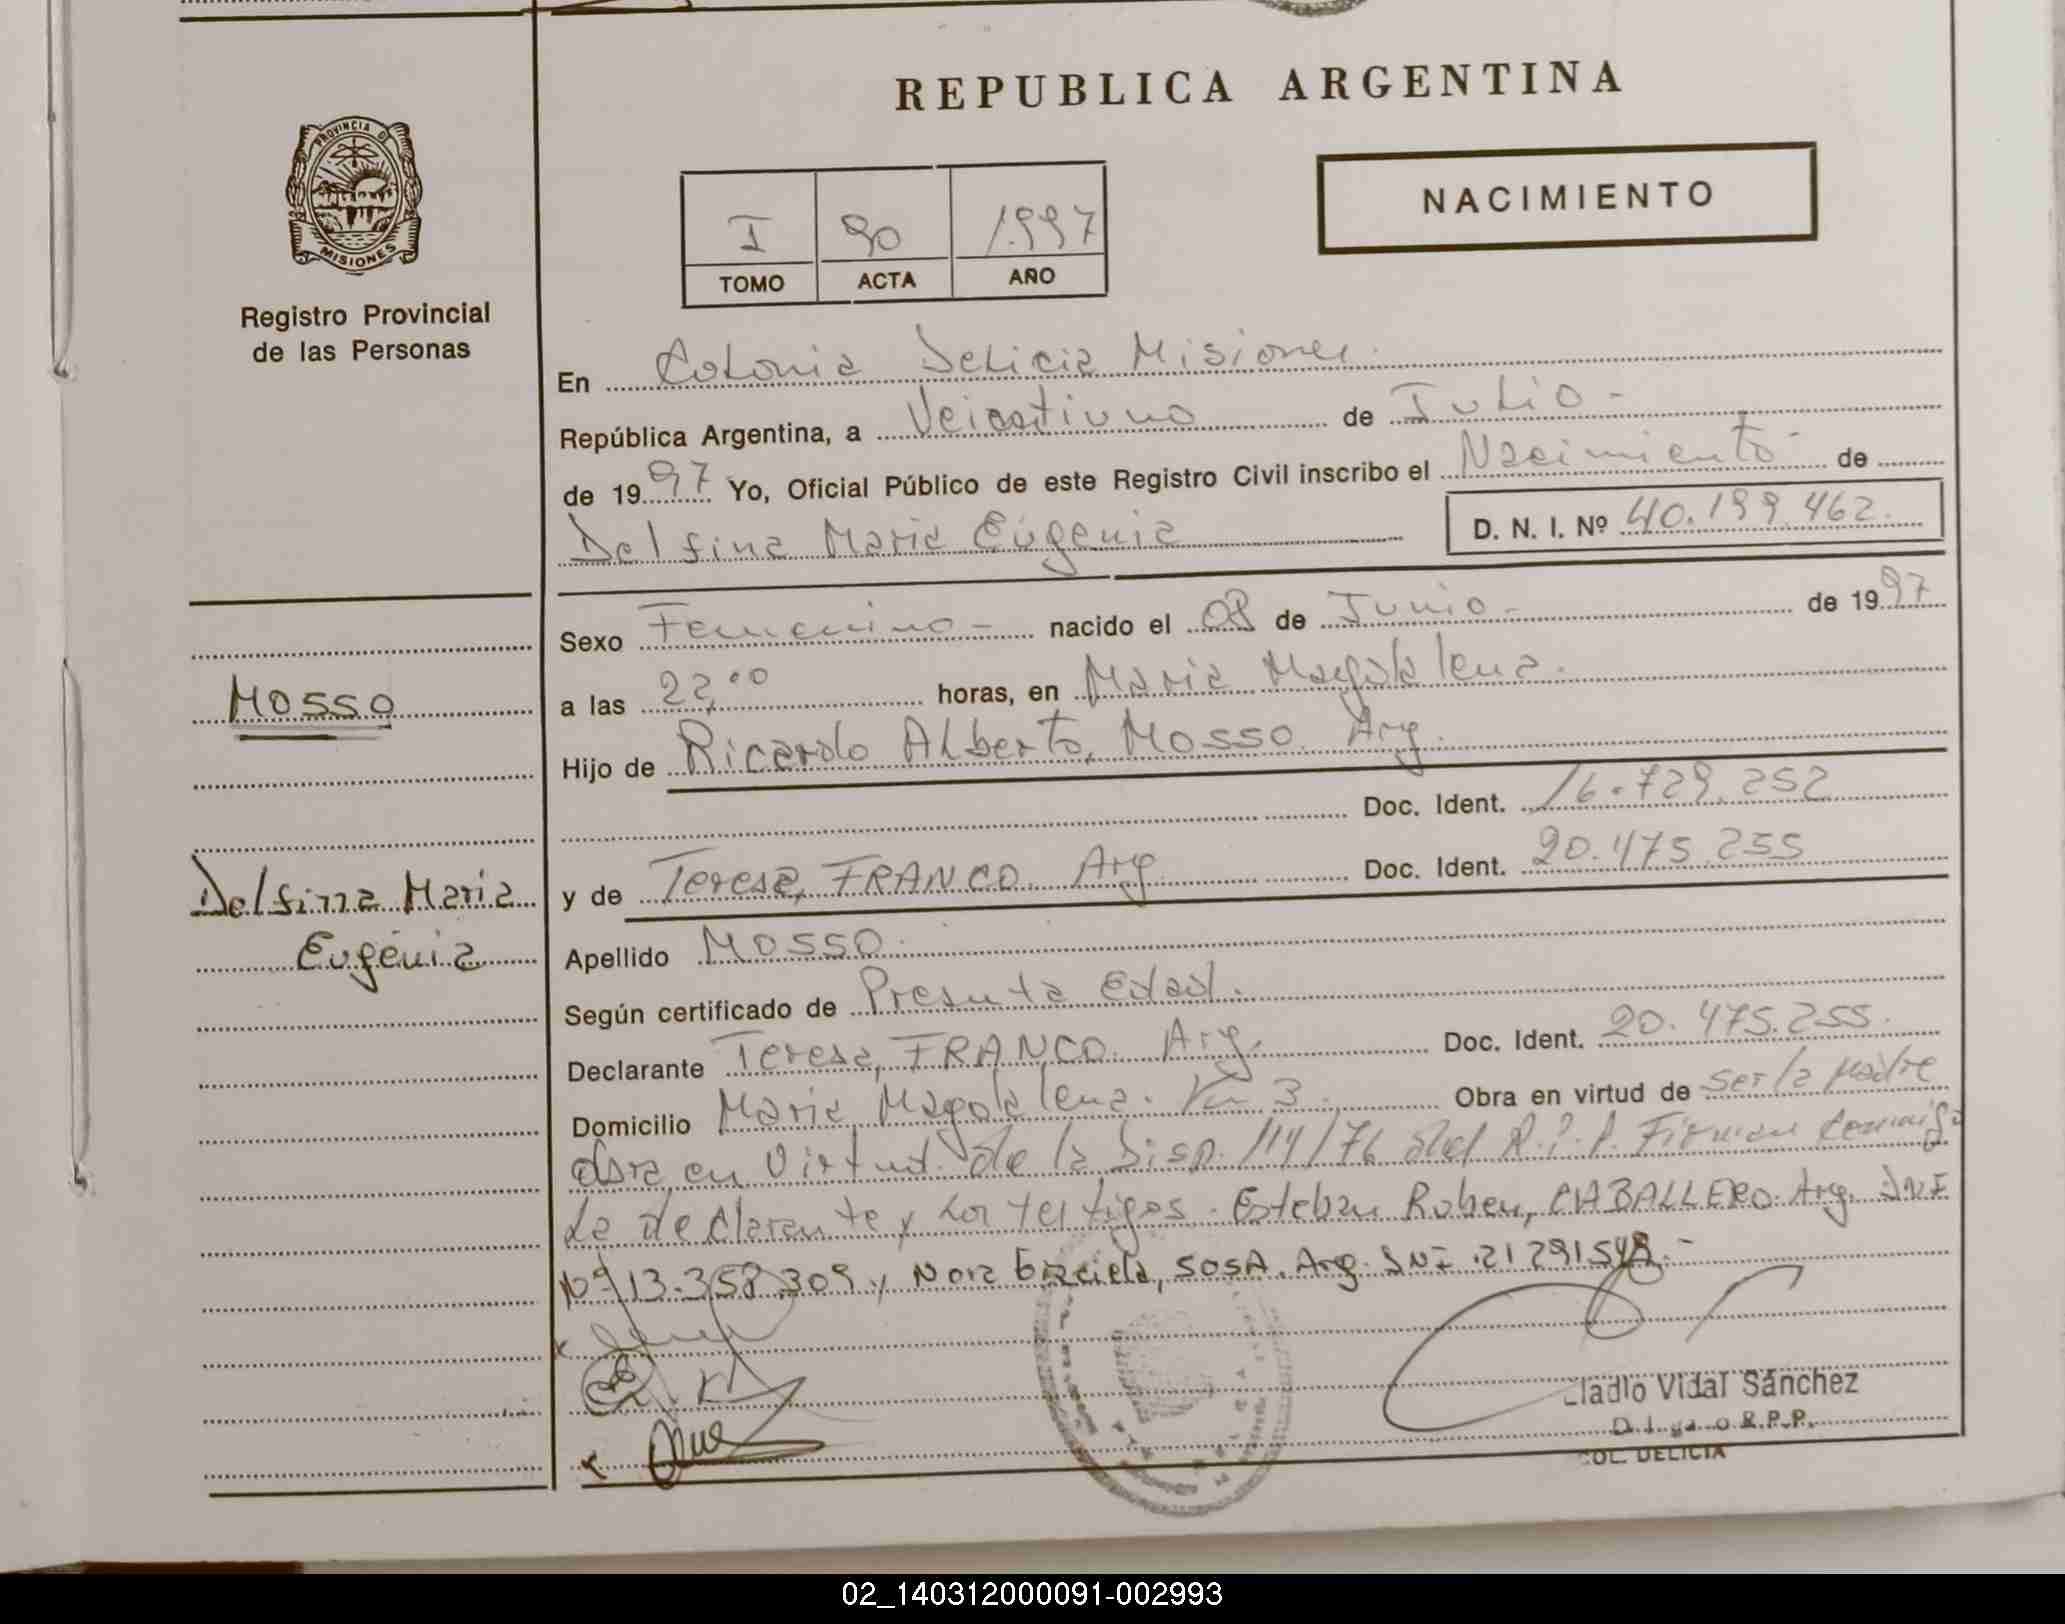 REPUBLICA ARGENTINA
PROVINCIA DE
MISIONES
Registro Provincial
de las Personas
I 90 1.997
TOMO ACTA AÑO
NACIMIENTO
En Colonia Delicia Misiones.
República Argentina, a Veintiuno de Julio-
de 1997 Yo, Oficial Público de este Registro Civil inscribo el Nacimiento- de
Delfina Maria Eugenia D. N. I. Nº 40.199.462.
Sexo Femenino- nacido el 08 de Junio- de 1997
a las 22,00 horas, en Maria Magdalena.
MOSSO
Hijo de Ricardo Alberto, MOSSO. Arg.
Doc. Ident. 16.729.252
y de Teresa, FRANCO. Arg. Doc. Ident. 20.475.255
Delfina Maria
Eugenia
Apellido MOSSO.
Según certificado de Presunta Edad.
Declarante Teresa, FRANCO. Arg. Doc. Ident. 20.475.255.
Domicilio Maria Magdalena. Km 3. Obra en virtud de ser la Madre
en Virtud de la Disp. 114/76 del R.P.P. Firman conmigo
La declarante y los testigos. Esteban Ruben, CABALLERO. Arg. DNI
Nº 13.358.309 y Nora Graciela, SOSA. Arg. DNI 21291548.-
Eladio Vidal Sánchez
R.P.P.
COL. DELICIA
02_140312000091-002993